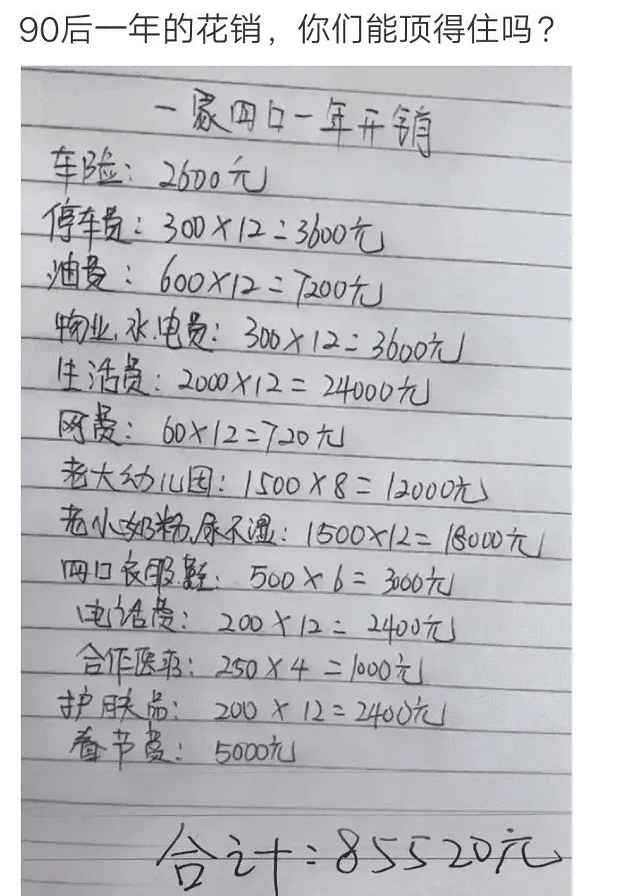 90后一年的花销，你们能顶得住吗？
一家四口一年开销
车险：2600元
停车费：300×12=3600元
油费：600×12=7200元
物业,水.电费：300×12=3600元
生活费：2000×12=24000元
网费：60×12=720元
老大幼儿园：1500×8=12000元
老小奶粉,尿不湿：1500×12=18000元
四口衣服鞋：500×6=3000元
电话费：200×12=2400元
合作医疗：250×4=1000元
护肤品：200×12=2400元
春节费：5000元
合计：85520元